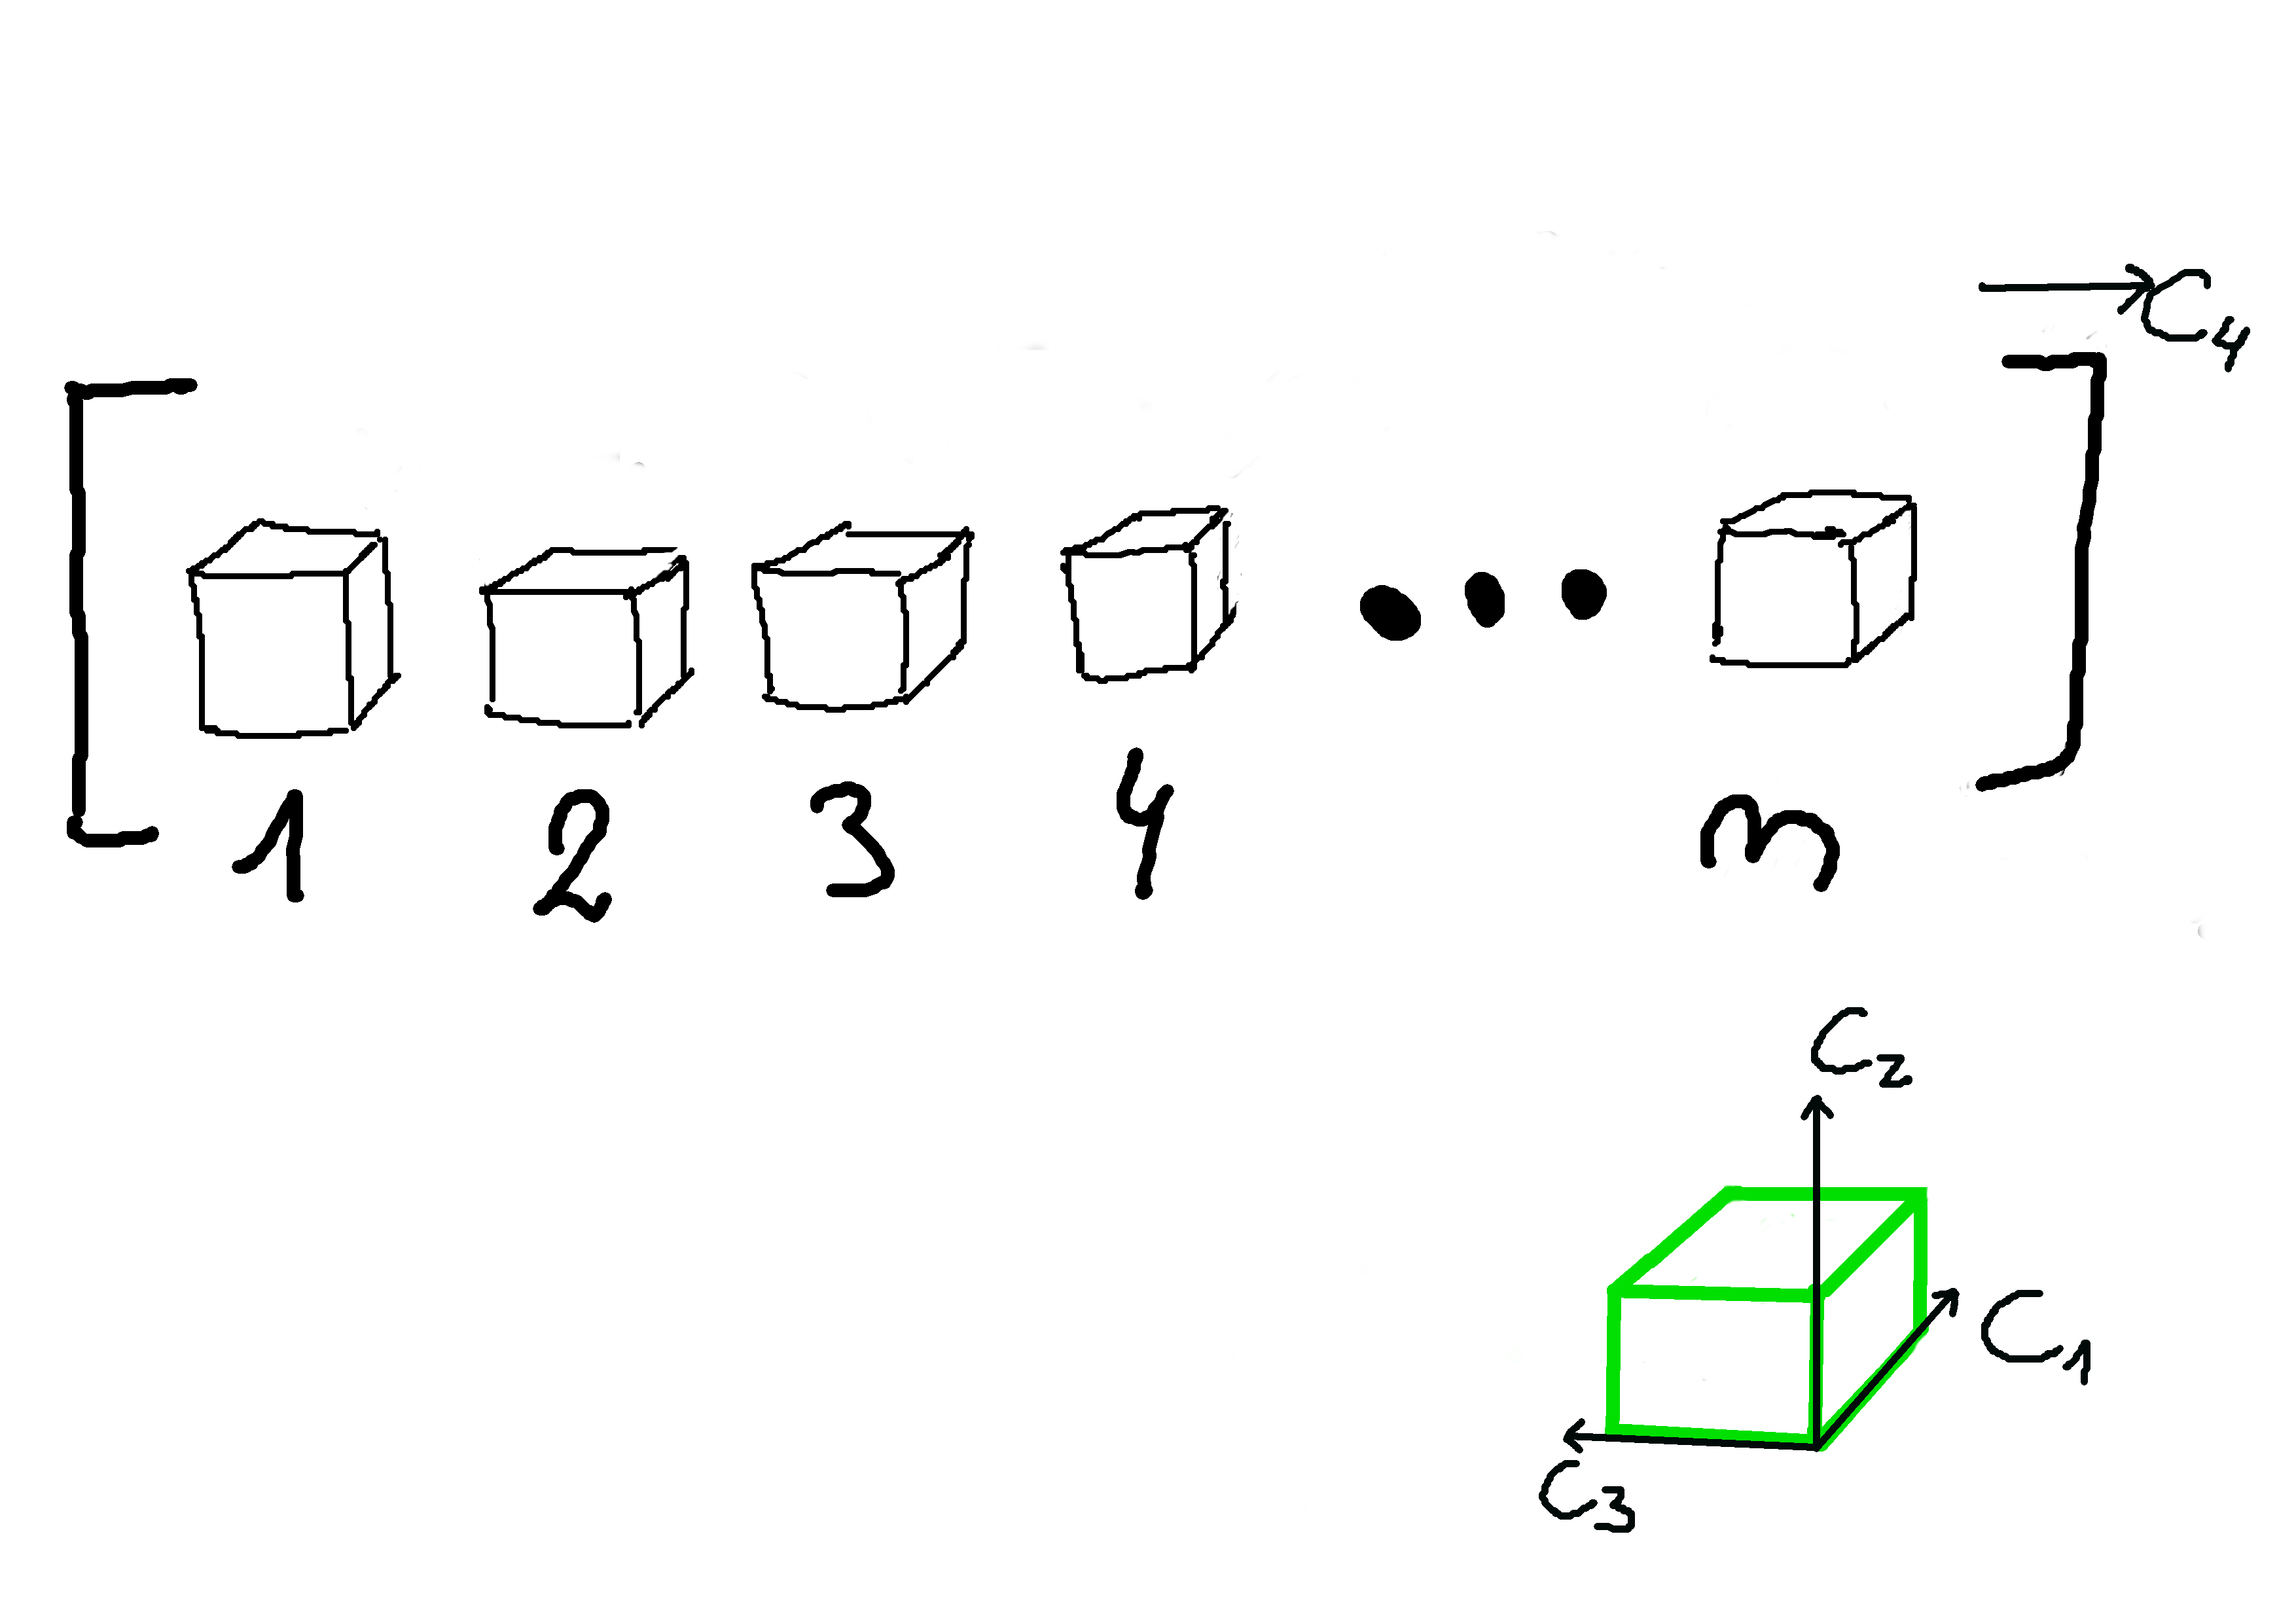 C4
1 2 3 4 n
C2
C1
C3